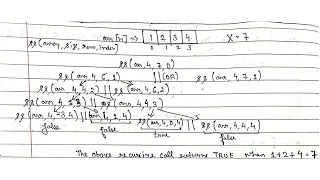 arr[n] ⇒ [1 | 2 | 3 | 4] X = 7
(array, size, sum, index) 0 1 2 3
(arr, 4, 7, 0)
(arr, 4, 6, 1) || (OR) (arr, 4, 7, 1)
(arr, 4, 4, 2) || (arr, 4, 6, 2)
(arr, 4, 1, 3) || (arr, 4, 4, 3)
(arr, 4, -3, 4) || (arr, 4, 1, 4) (arr, 4, 0, 4) || (arr, 4, 4, 4)
false false true false
The above recursive call returns TRUE when 1+2+4 = 7